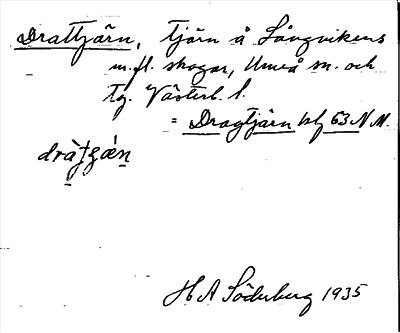 Drattjärn, tjärn å Långvikens
m.fl. skogar, Umeå sn. och
tg. Västerb. l.
= Dragtjärn bl 63 N.M.
dràtʒæ̀n
H A Söderberg 1935